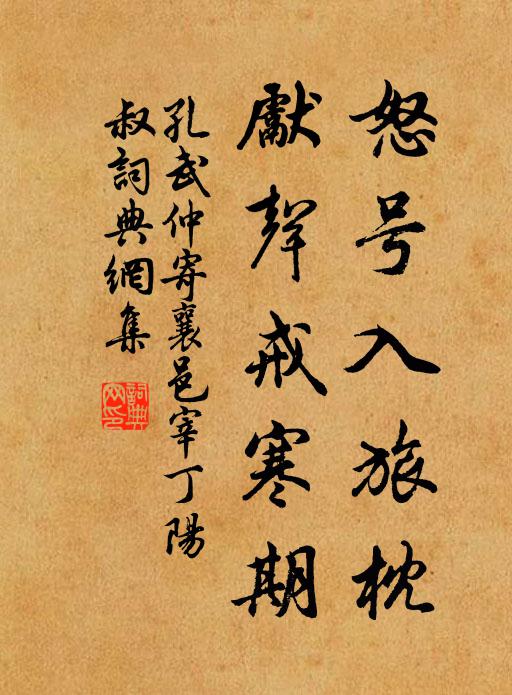 怒号入旅枕
獻聲戒寒期
孔武仲寄襄邑宰丁陽
叔詞典網集
詞典网印